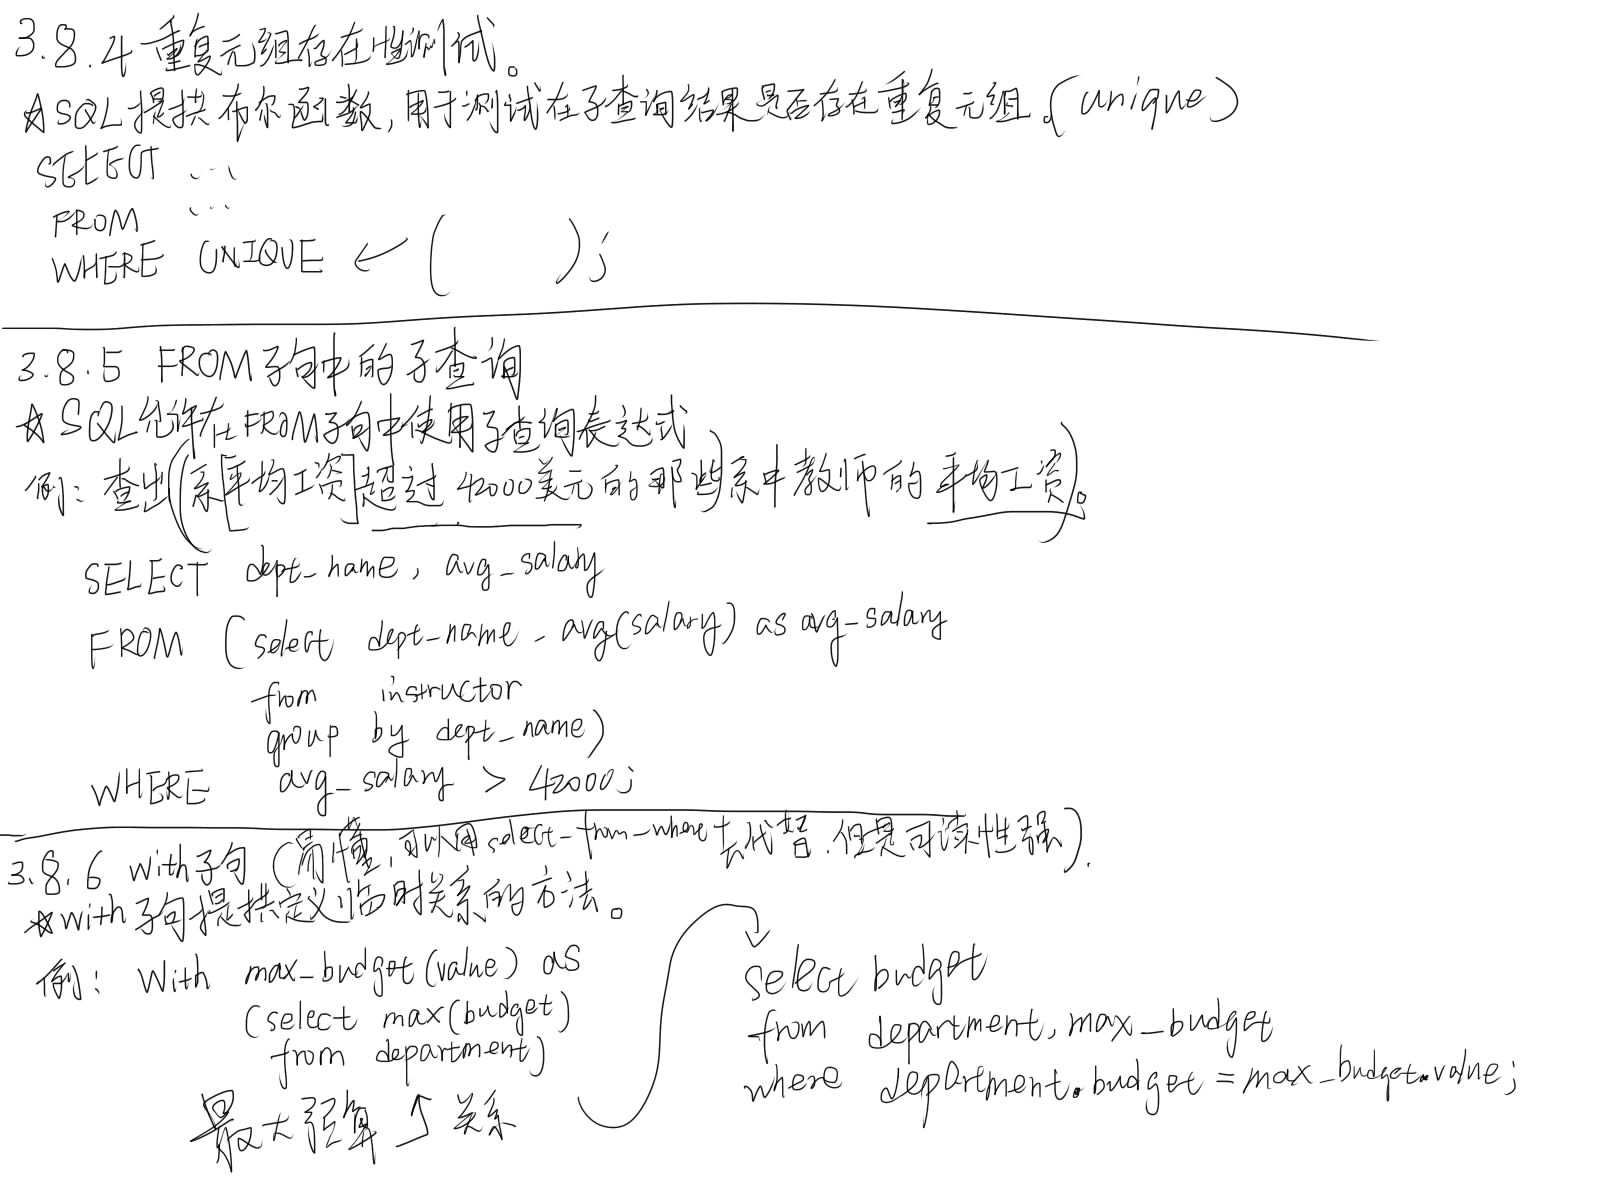 3.8.4 重复元组存在性测试。
☆SQL提拱布尔函数,用于测试在子查询结果是否存在重复元组。(unique)
SELECT ...
FROM ...
WHERE UNIQUE ← ( );
3.8.5 FROM子句中的子查询
☆SQL允许在FROM子句中使用子查询表达式
例: 查出(系[平均工资]超过42000美元的那些)系中教师的平均工资)。
SELECT dept_name, avg_salary
FROM (select dept_name - avg(salary) as avg_salary
from instructor
group by dept_name)
WHERE avg_salary > 42000;
3.8.6 With子句 (易懂,可以用select-from-where去代替.但是可读性强).
☆with子句提拱定义临时关系的方法。
例: With max_budget(value) as
(select max(budget)
from department)
最大预算 ↑ 关系
select budget
from department, max_budget
where department.budget = max_budget.value;